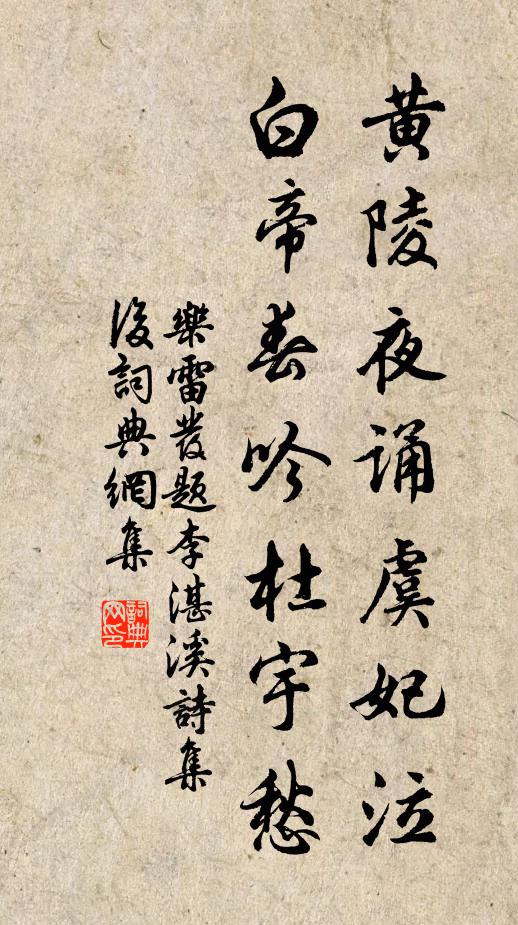 黄陵夜誦虞妃泣
白帝春吟杜宇愁
樂雷發題李湛溪詩集
後詞典網集
詞典网印